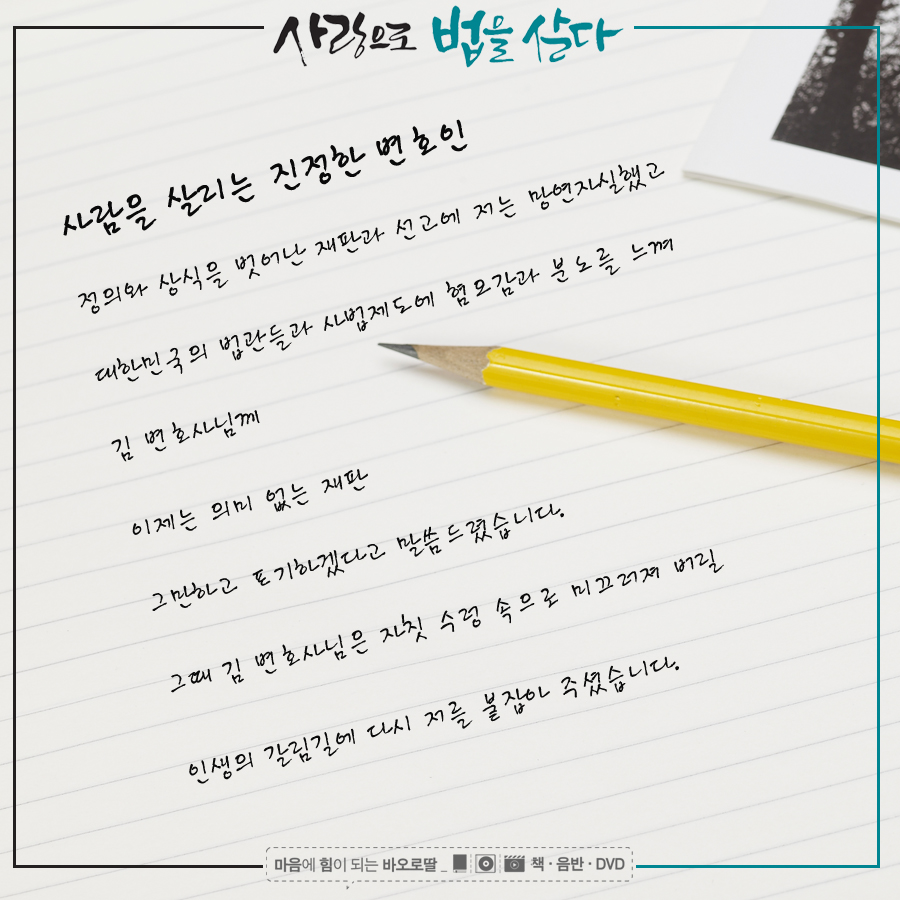 사랑으로 법을 살다
사람을 살리는 진정한 변호인
정의와 상식을 벗어난 재판과 선고에 저는 망연자실했고
대한민국의 법관들과 사법제도에 혐오감과 분노를 느껴
김 변호사님께
이제는 의미 없는 재판
그만하고 포기하겠다고 말씀드렸습니다.
그때 김 변호사님은 자칫 수렁 속으로 미끄러져 버릴
인생의 갈림길에 다시 저를 붙잡아 주셨습니다.
마음에 힘이 되는 바오로딸_ 책·음반·DVD